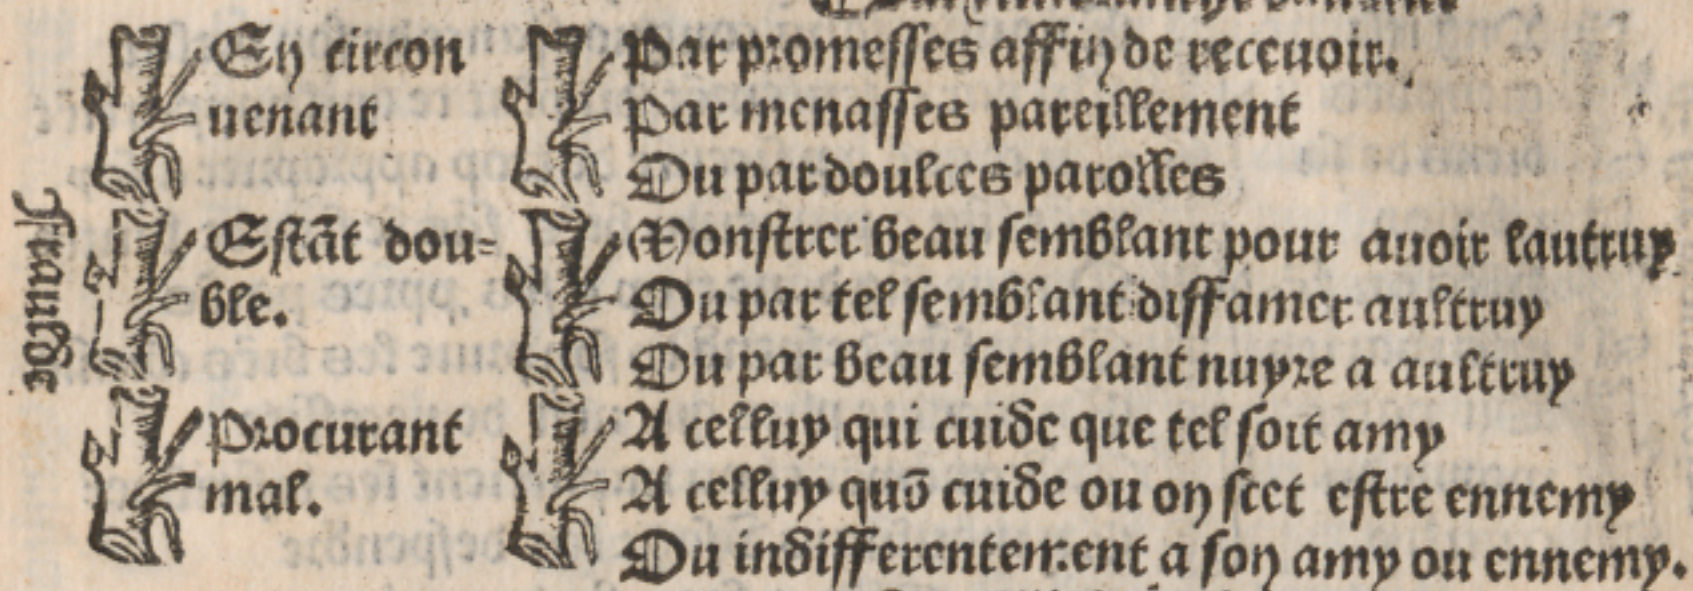 Fraulde
En circon
uenant
Par promesses affin de receuoir.
Par menasses pareillement
Ou par doulces parolles
Estāt dou=
ble.
Monstrer beau semblant pour auoir lautruy
Ou par tel semblant diffamer aultruy
Ou par beau semblant nuyre a aultruy
Procurant
mal.
A celluy qui cuide que tel soit amy
A celluy quō cuide ou on scet estre ennemy
Ou indifferentement a son amy ou ennemy.